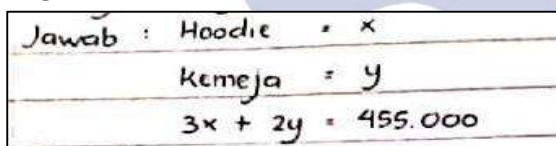 Jawab : Hoodie = x
Kemeja = y
3x + 2y = 455.000